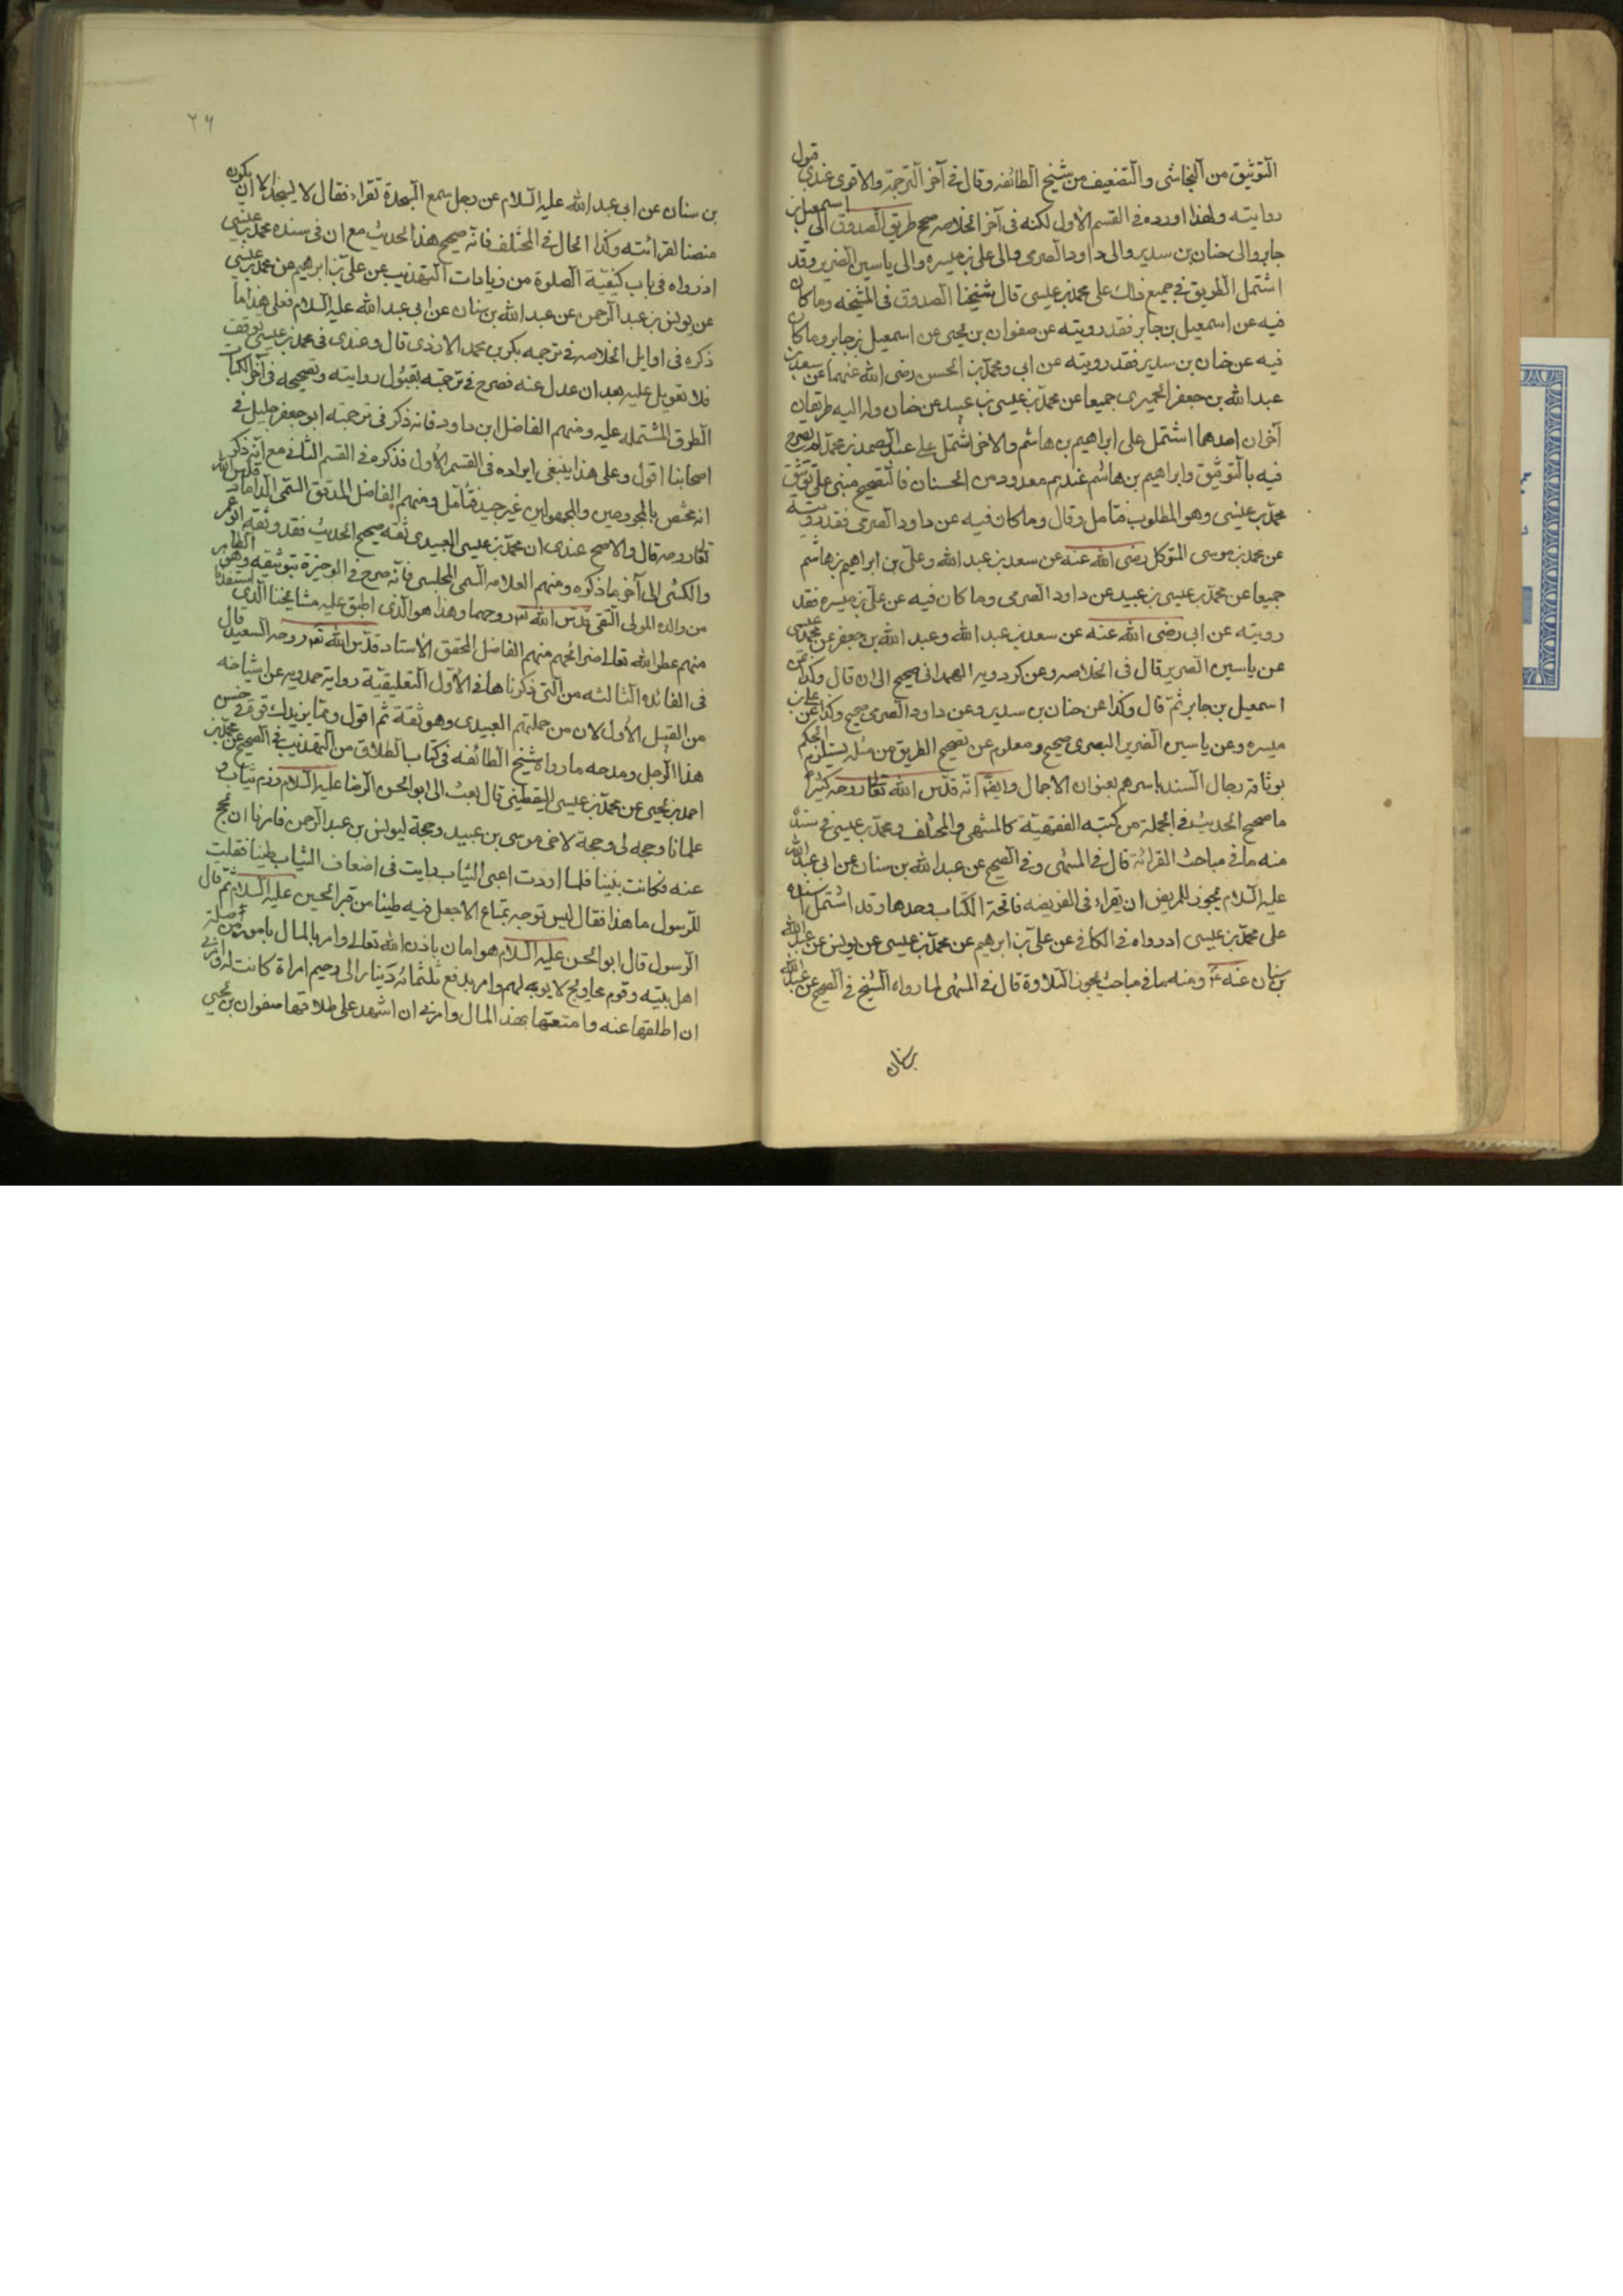 التوثيق من النجاشى والتضعيف من شيخ الطائفه وقال فى آخر الترجمة والاقوى عندى قبول
روايته ولهذا اورده فى القسم الاول لكنه فى آخر الخلاصه صحح طريق الصدوق الى اسمعيل بن
جابر والى حنان بن سدير والى داود الصرمى والى على بن ميسره والى ياسين الضرير وقد
اشتمل الطريق فى جميع ذلك على محمد بن عيسى قال شيخنا الصدوق فى المشيخه وما كان
فيه عن اسمعيل بن جابر فقد رويته عن صفوان بن يحيى عن اسمعيل بن جابر وما كان
فيه عن حنان بن سدير فقد رويته عن ابى ومحمد بن الحسن رضى الله عنهما عن سعد بن
عبد الله بن جعفر الحميرى جميعا عن محمد بن عيسى بن عبيد عن حنان وله اليه طريقان
آخران احدهما اشتمل على ابراهيم بن هاشم والاخر اشتمل على عبد الصمد بن محمد لم يصرح
فيه بالتوثيق وابراهيم بن هاشم عندهم معدود من الحسان فالتصحيح مبنى على توثيق
محمد بن عيسى وهو المطلوب فتامل وقال وما كان فيه عن داود الصرمى فقد رويته
عن محمد بن موسى المتوكل رضى الله عنه عن سعد بن عبد الله وعلى بن ابراهيم بن هاشم
جميعا عن محمد بن عيسى بن عبيد عن داود الصرمى وما كان فيه عن على بن ميسره فقد
رويته عن ابى رضى الله عنه عن سعد بن عبد الله وعبد الله بن جعفر عن محمد بن عيسى
عن ياسين الضرير قال فى الخلاصه وعن كردويه الهمدانى صحيح الى ان قال وكذا عن
اسمعيل بن جابر ثم قال وكذا عن حنان بن سدير وعن داود الصرمى صحيح وكذا عن على بن
ميسره وعن ياسين الضرير البصرى صحيح ومعلوم عن تصحيح الطريق من مثله يستلزم الحكم
بوثاقة رجال السند باسرهم بعنوان الاجمال وايضا انه قدس الله تعالى روحه كثيرا
ما صحح الحديث فى الجملة من كتبه الفقهية كالمنتهى والمختلف ومحمد بن عيسى فى سنده
منه ما فى مباحث القرائة قال فى المنتهى وفى الصحيح عن عبد الله بن سنان عن ابى عبد الله
عليه السلام يجوز للمريض ان يقراء فى الفريضه فاتحة الكتاب وحدها وقد اشتمل سنده
على محمد بن عيسى اذ رواه فى الكافى عن على بن ابراهيم عن محمد بن عيسى عن يونس عن عبد الله
بن سنان عنه ع ومنه ما فى مباحث سجود التلاوة قال فى المنتهى لما رواه الشيخ فى الصحيح عن عبد الله
بن سنان
٢٦
بن سنان عن ابى عبد الله عليه السلام عن رجل سمع السجدة تقراء فقال لا يسجد الا ان يكون
منصتا لقرائته وكذا الحال فى المختلف فانه صحح هذا الحديث مع ان فى سنده محمد بن عيسى
اذ رواه فى باب كيفية الصلوة من زيادات التهذيب عن على بن ابراهيم عن محمد بن عيسى
عن يونس بن عبد الرحمن عن عبد الله بن سنان عن ابى عبد الله عليه السلام فعلى هذا ما
ذكره فى اوايل الخلاصه فى ترجمه بكر بن محمد الازدى قال وعندى فى محمد بن عيسى توقف
فلا تعويل عليه بعد ان عدل عنه فصرح فى ترجمته بقبول روايته وتصحيحه فى آخر الكتاب
الطرق المشتمله عليه ومنهم الفاضل ابن داود فانه ذكر فى ترجمته ابو جعفر جليل فى
اصحابنا اقول وعلى هذا ينبغى ايراده فى القسم الاول فذكره فى القسم الثانى مع انه ذكر
انه مختص بالمجروحين والمجهولين غير جيد فتامل ومنهم الفاضل المدقق السمى الداماد قدس الله
تعالى روحه قال والاصح عندى ان محمد بن عيسى العبيدى ثقة صحيح الحديث فقد وثقه ابو عمر
والكشى الى آخر ما ذكره ومنهم العلامه السمى المجلسى فانه صرح فى الوجيزة بتوثيقه وهو الظاهر
من والده المولى التقى قدس الله تعالى روحهما وهذا هو الذى اطبق عليه مشايخنا الذى استفدنا
منهم عطر الله تعالى ضرائحهم منهم الفاضل المحقق الاستاد قدس الله تعالى روحه السعيد قال
فى الفائدة الثالثه من التى ذكرناها فى الاول التعليقية رواية حمدويه عن اشياخه
من القبيل الاول لان من جملتهم العبيدى وهو ثقة ثم اقول ومما يزيدك قوة فى حسن
هذا الرجل ومدحه ما رواه شيخ الطائفه فى كتاب الطلاق من التهذيب فى الصحيح عن محمد بن
احمد بن يحيى عن محمد بن عيسى اليقطينى قال بعث الى ابو الحسن الرضا عليه السلام رزم ثياب و
غلمانا وحجه لى وحجة لاخى موسى بن عبيد وحجة ليونس بن عبد الرحمن فامرنا ان نحج
عنه فكانت بيننا فلما اردت اعبى الثياب رايت فى اضعاف الثياب طينا فقلت
للرسول ما هذا فقال ليس توجه بمتاع الا جعل فيه طينا من قبر الحسين عليه السلام ثم قال
الرسول قال ابو الحسن عليه السلام هو امان باذن الله تعالى وامر بالمال بامور من صلة
اهل بيته وقوم محاويج لا يوبه لهم وامر بدفع ثلثمائة دينار الى رحيم امراة كانت له وامرنى
ان اطلقها عنه وامتعها بهذا المال وامرنى ان اشهد على طلاقها صفوان بن يحيى